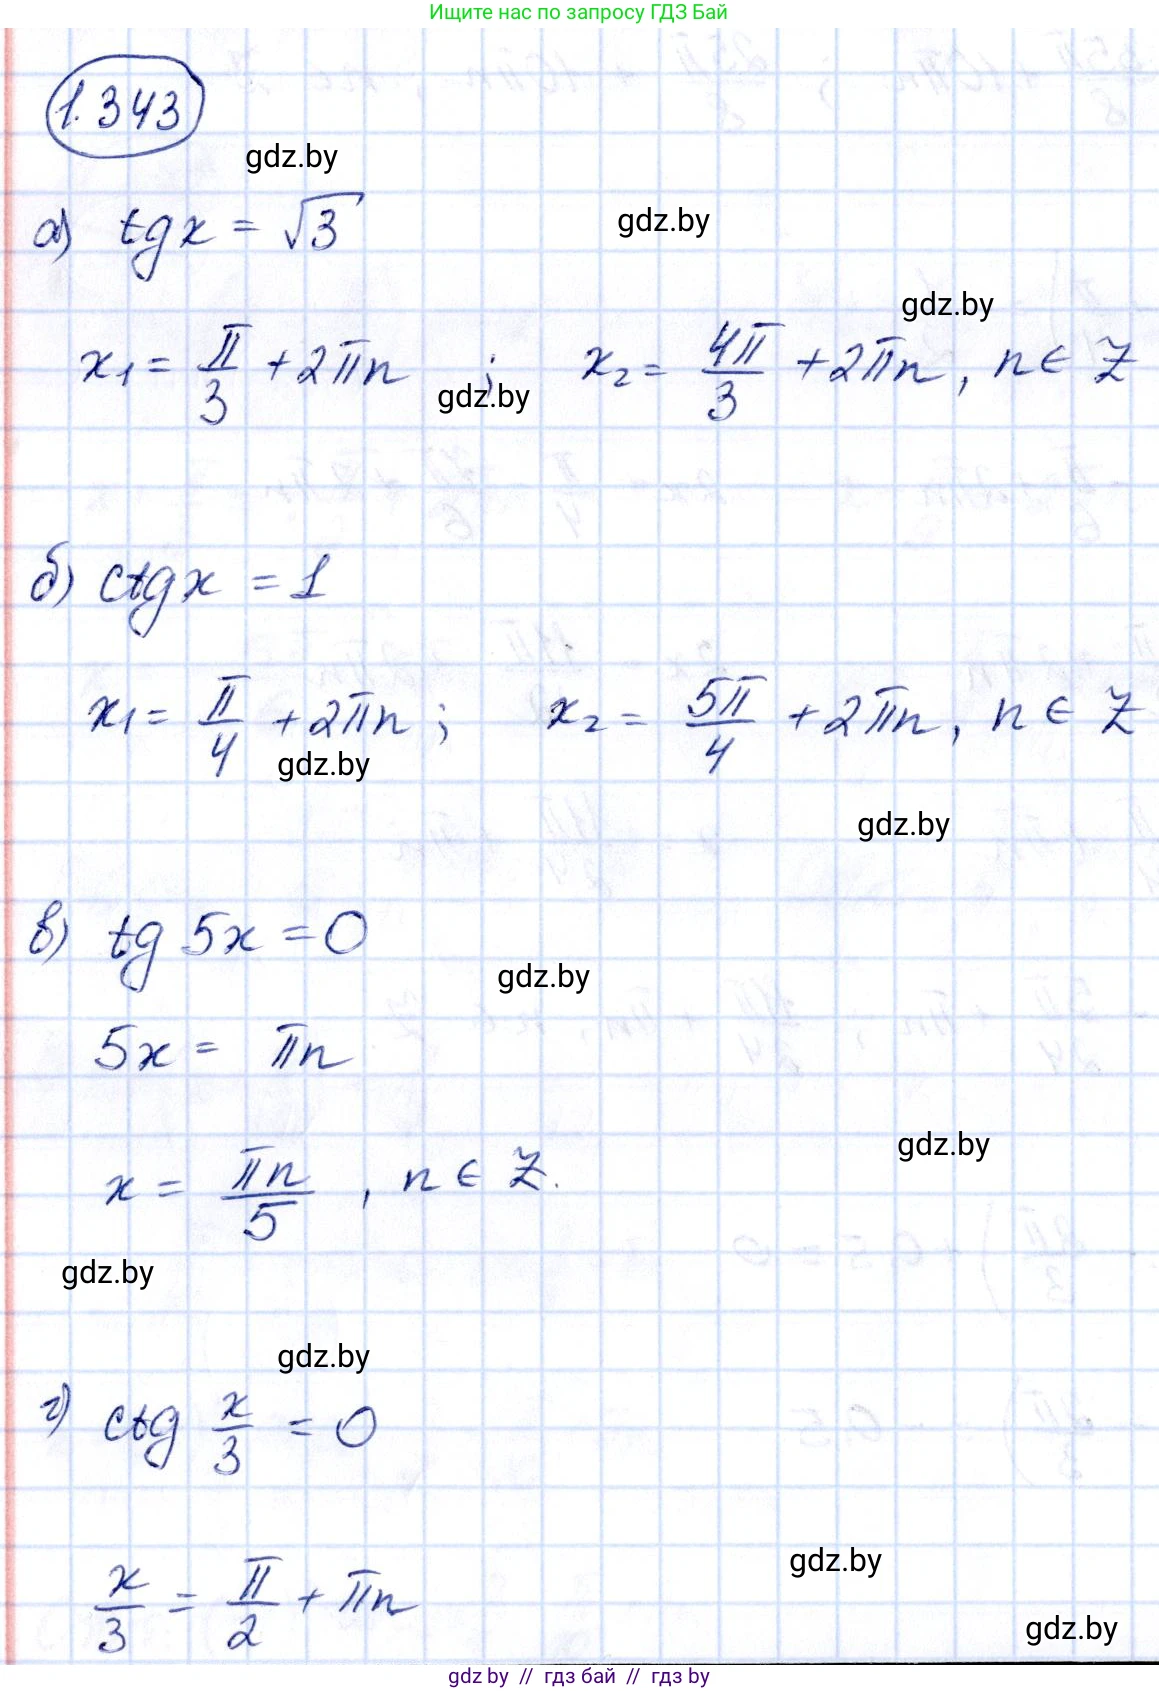 Ищите нас по запросу ГДЗ Бай
1.343
gdz.by
а) tg x = √3
gdz.by
gdz.by
x₁ = π/3 + 2πn ; x₂ = 4π/3 + 2πn, n ∈ Z
gdz.by
б) ctg x = 1
x₁ = π/4 + 2πn ; x₂ = 5π/4 + 2πn, n ∈ Z
gdz.by
gdz.by
в) tg 5x = 0
gdz.by
5x = πn
gdz.by
x = πn/5 , n ∈ Z.
gdz.by
gdz.by
г) ctg x/3 = 0
gdz.by
x/3 = π/2 + πn
gdz.by
gdz.by // гдз бай // гдз by